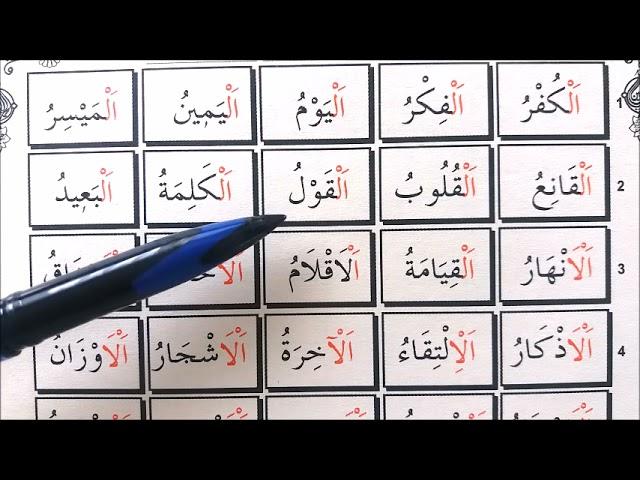 1 اَلْكُفْرُ اَلْفِكْرُ اَلْيَوْمُ اَلْيَمِينُ اَلْمَيْسِرُ
2 اَلْقَانِعُ اَلْقُلُوبُ اَلْقَوْلُ اَلْكَلِمَةُ اَلْبَعِيدُ
3 اَلْاَنْهَارُ اَلْقِيَامَةُ اَلْاَقْلَامُ
4 اَلْاَذْكَارُ اَلْاِلْتِقَاءُ اَلْآخِرَةُ اَلْاَشْجَارُ اَلْاَوْزَانُ